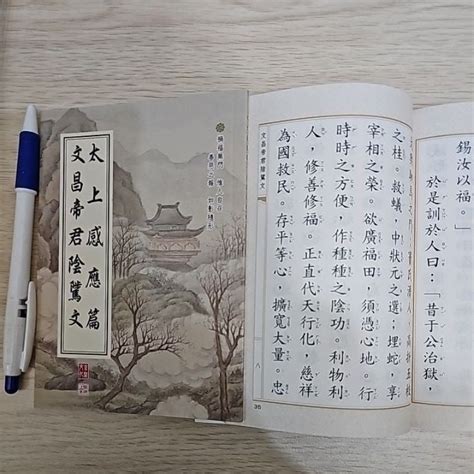 太上感應篇
文昌帝君陰騭文
禍福無門 惟人自召
善惡之報 如影隨形
錫汝以福。」
於是訓於人曰：「昔于公治獄，
濟人，高折五枝
之桂。救蟻，中狀元之選；埋蛇，享
宰相之榮。欲廣福田，須憑心地。行
時時之方便，作種種之陰功。利物利
人，修善修福。正直代天行化，慈祥
為國救民。存平等心，擴寬大量。忠
文昌帝君陰騭文
八